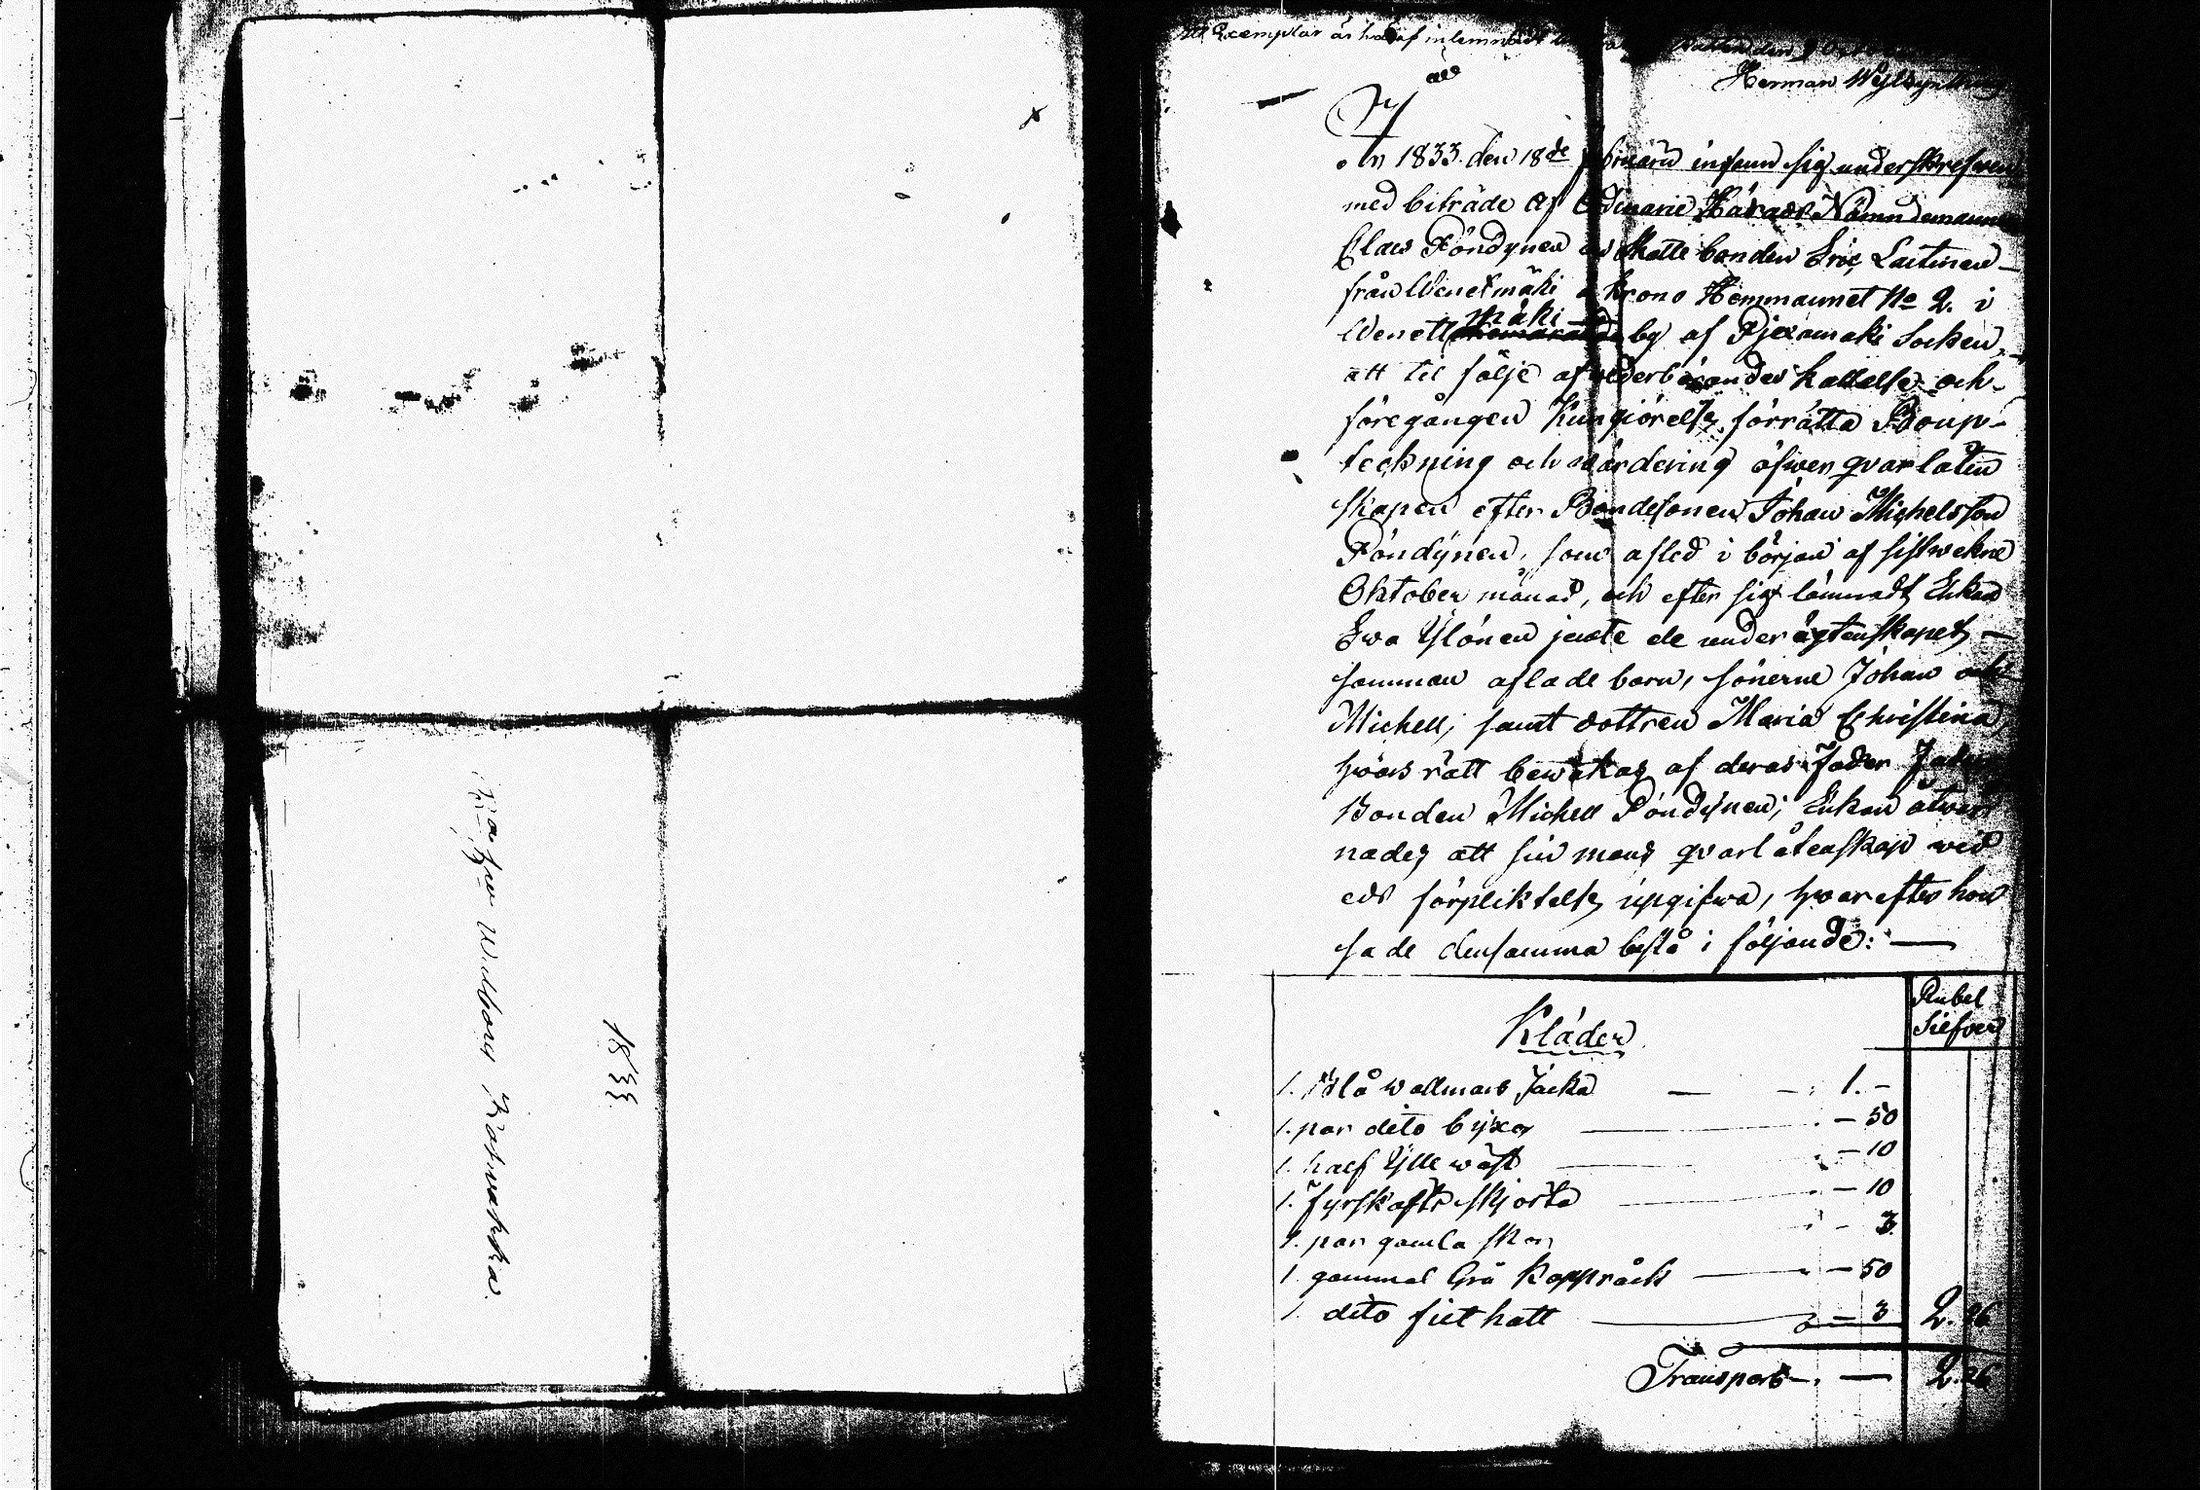 1833.
Ett Exemplar är häraf inlemnadt
Herman
År
1833. den 18de februarii infann sig underskrefven
med biträde af Ordinarie Härads Nämndemannen
Claes Pöndynen och Skatte bonden Eric Laitinen
från Wenetmäki å Krono Hemmanet No 2. i
Wenett mäki by af Pjexämäki Socken,
att til följe af wederbörandes kallelse och
föregången Kungiörelse, förrätta Boup-
teckning och wärdering öfwer qvarlåten
skapen efter Bondesonen Johan Michelsson
Pöndynen, som afled i början af sistwekne
Oktober månad, och efter sig lämnadt Enkan
Ewa Ylönen jemte de under ägtenskapet
samman aflade barn, sönerne Johan och
Michell, samt dottren Maria Christina,
hwars rätt bewakas af deras Fader Fader
Bonden Michell Pöndynen; Enkan åtwar
nades att sin mans qvarlåtenskap wid
eds förpliktelse upgifwa, hwarefter hon
sade densamma bestå i följande:
Rubel
Silfver
Kläder
1. Blå wallmans Jacka 1. -
1. par dito byxor - 50
1. half Ylle wäst - 10
1. fyrskafts skjorta - 10
1. par gamla skor - 3
1. gammal Grå Kappråck - 50
1. dito filt hatt - 3 2. 26
Transport 2. 26